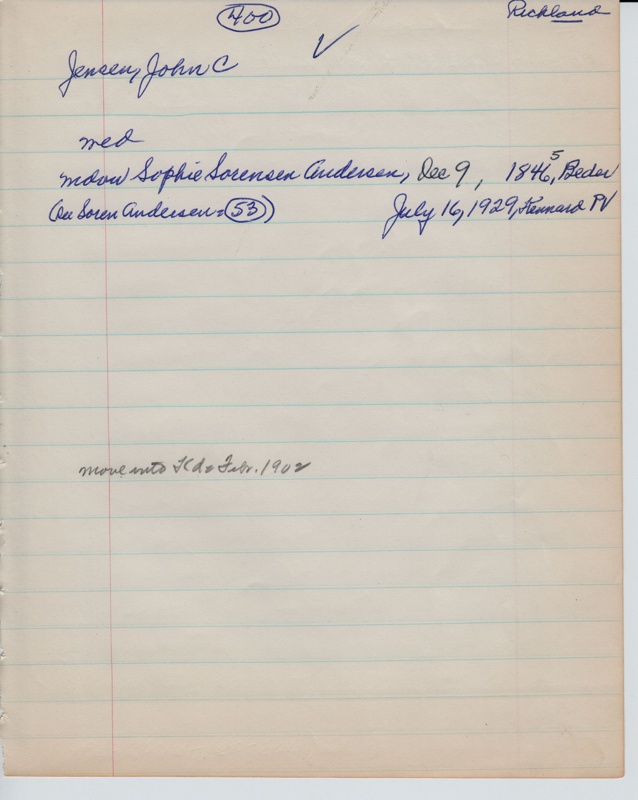 400
Richland
Jensen, John C
med
Sophie Sorensen Andersen, Dec 9, 1846 5, Beder
(See Soren Andersen = 53) July 16, 1929, Kennard PV
move into Kd Feb. 1902